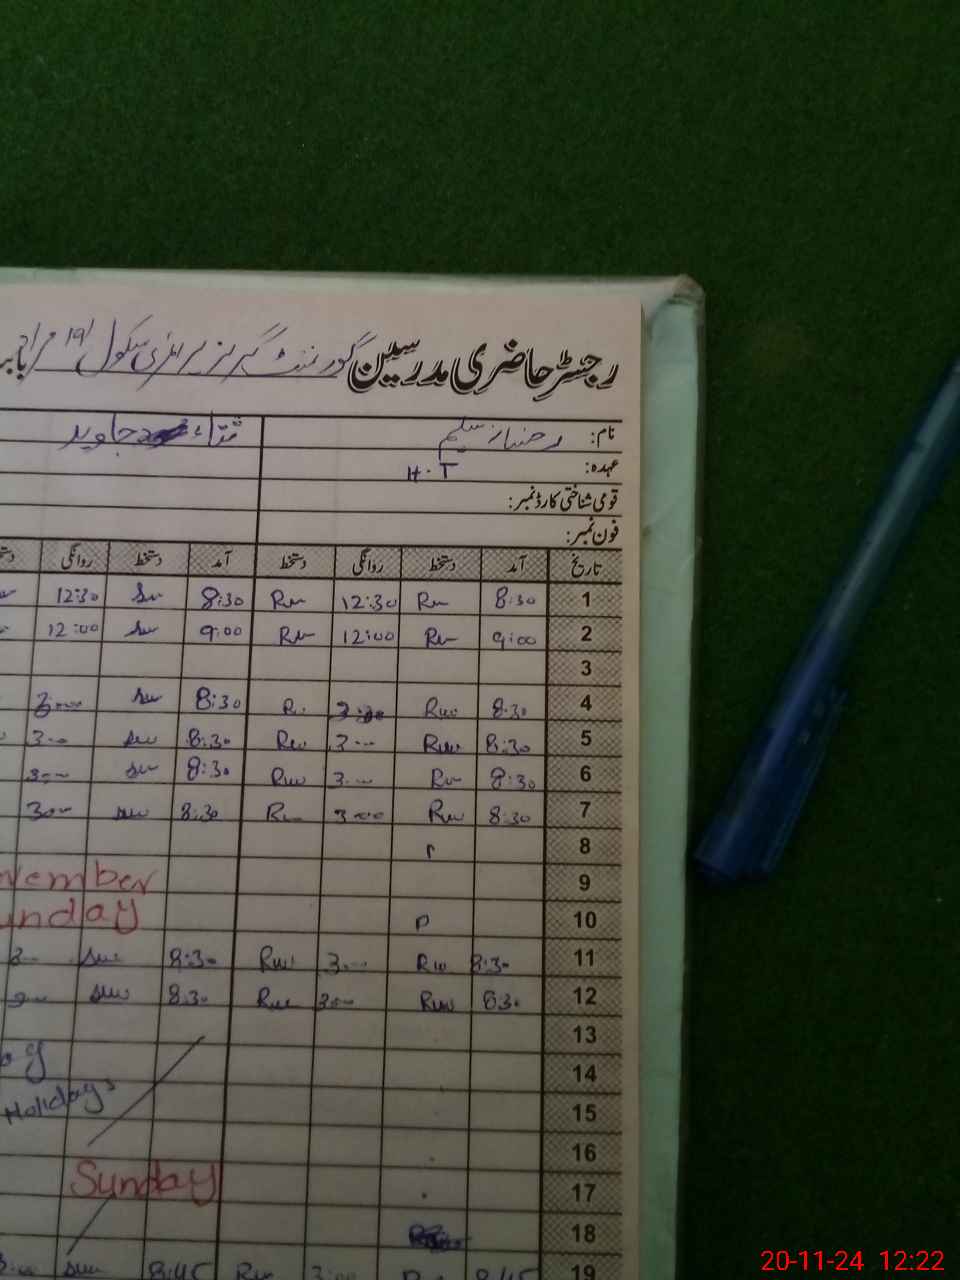 رجسٹر حاضری مدرسین گورنمنٹ گرلز پرائمری سکول 191
نام: رضیانہ سلیم جاوید
عہدہ: H.T
قومی شناختی کارڈ نمبر:
فون نمبر:
تاریخ آمد دستخط روانگی دستخط آمد دستخط روانگی
1 8:30 Ru 12:30 Ru 8:30 Su 12:30
2 9:00 Ru 12:00 Ru 9:00 Su 12:00
3
4 8:30 Ruu Ru 8:30 Su 3:00
5 8:30 Ruu 3:00 Ru 8:30 Su 3:00
6 8:30 Ru 3:00 Ruu 8:30 Su 3:00
7 8:30 Ruu 3:00 Ru 8:30 Suu 3:00
8
9
10 Sunday
11 8:30 Ru 3:00 Ruu 8:30 Suu 3:00
12 8:30 Ruu 3:00 Ruu 8:30 Suu 3:00
13
14
15 Holidays
16
17 Sunday
18
19 8:45 Ru 3:00 Ru 8:45 Suu 3:00
20-11-24 12:22